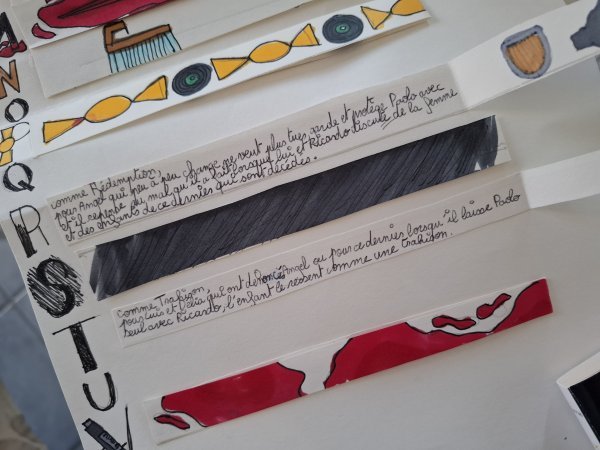 N
O
Q
R
S
T
U
comme Rédemption,
pour Angel qui peu à peu change, ne veut plus tuer, garde et protège Paolo avec
et il explose du mal qu'il a fait lorsque lui et Ricardo discute de la femme
et des enfants de ce dernier qui sont décédés.
comme Trahison,
pour Luis et Délia qui ont dénoncé Angel ou pour ce dernier lorsqu'il laisse Paolo
seul avec Ricardo, l'enfant le ressent comme une trahison.